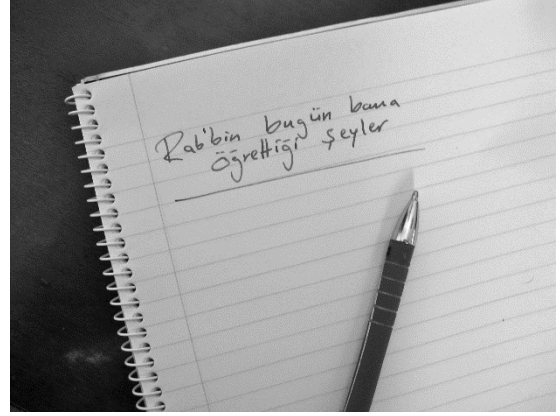 Rab'bin bugün bana
öğrettiği şeyler